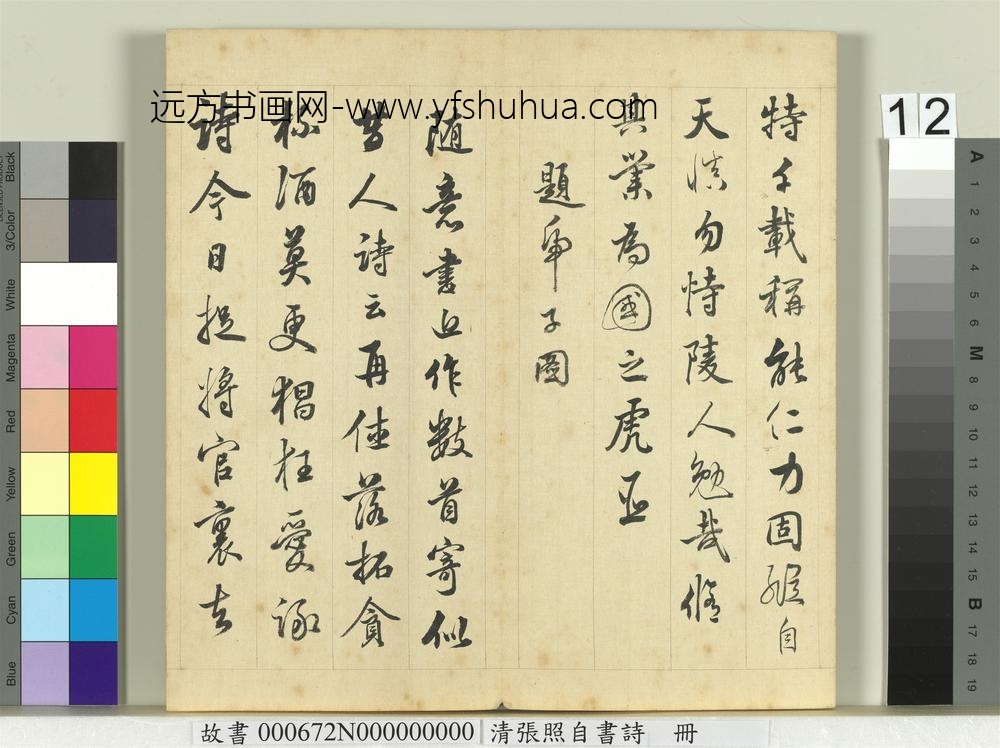 远方书画网-www.yfshuhua.com
特千載稱能仁力固縱自
天慎勿恃陵人勉哉脩
其業為國之虎臣
題子圖
随意書近作數首寄似
昔人詩云再休落拓貪
杯酒莫更猖狂愛詠
詩今日捉將官裏去
12
Black
3/Color
White
Magenta
Red
Yellow
Green
Cyan
Blue
A
1
2
3
4
5
6
M
8
9
10
11
12
13
14
15
B
17
18
19
故書 000672N000000000 清張照自書詩 冊